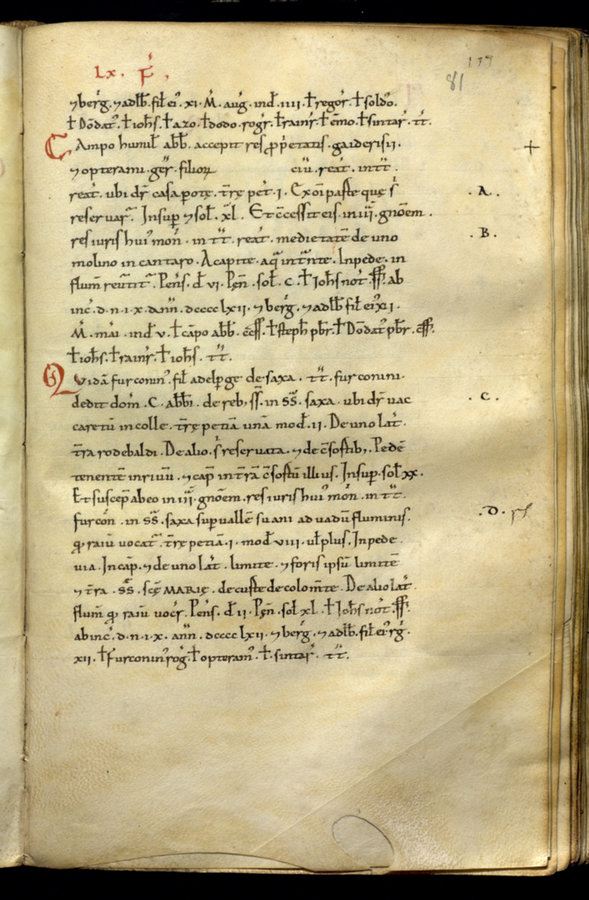 LX. F.
137
81
⁊ berg̃. ⁊ adlb̃. fil̃ ei'. xi. M̃. aug̃. ind̃. iiii. † regor̃. † soldo.
† D̃odat'. † ioħs. † azo. † dodo. rog̃. † rainr̃. † c̃mo. † sintar̃. tt̃.
Campo humil̃ abb̃. accepit res ꝓp̃etatis. gaiderisii.
⁊ opterami. ger̃. filioꝝ ciũ. reat̃. in tt̃.
reat̃. ubi dr̃ casa potẹ. tr̃ẹ pet̃. i. Ex om̃i parte quẹ s̃
reseruar̃. Insup̃ ⁊ sol̃. xl. Et c̃cessit eis. in iii. gñoem.
res iuris hui' moñ. in tt̃. reat̃. medietatẽ de uno
molino in cantaro. A capite. aq̃ int̃nte. Inpede. in
flum̃ reũtit̃. Pens̃. d̃. vi. Pẽn. sol̃. c. † Ioħs not̃. ss̃. ab
inc̃. d. n. i. x. ãnn. dcccc lxii. ⁊ berg̃. ⁊ adlb̃. fil̃ ei' xii.
M̃. mai. ind̃. v. † cãpo abb̃. c̃ss̃. † steph̃ pbr̃. † D̃odat' pbr̃. c̃ss̃.
† ioħs. † rainr̃. † ioħs. tt̃.
Quidã furconin'. fil̃ adelp̱ge de saxa. tt̃. furconini.
dedit dom̃. C. abb̃i. de reb; ss̃. in ss̃. saxa. ubi dr̃ uac
caretũ in colle. tr̃ẹ petiã unã mod̃. ii. De uno lat̃.
tr̃ra rodebaldi. De alio. s̃ reseruata. ⁊ de c̃sortib;. Pedẽ
tenentẽ in riuũ. ⁊ cap̃ in tr̃ã c̃sortũ illius. Insup̃. sol̃ xx.
Et suscep̃ ab eo in iii. gñoem. res iuris hui' moñ. in tt̃.
furcoñ. in ss̃. saxa sup uallẽ suani ad uadũ fluminis.
qđ raiũ uocat̃. tr̃ẹ petiã. i. mod̃ viii. ul̃ plus. Inpede.
uia. Incap̃. ⁊ de uno lat̃. limite. ⁊ foris ipsũ limitẽ
⁊ tr̃a. ss̃. scẽ MARIE. de curte de colom̃te. De alio lat̃.
flum̃ qđ raiũ uocr̃. Pens̃. d̃. ii. Pẽn. sol̃ xl. † Ioħs not̃. ss̃.
ab inc̃. d. n. i. x. ãnn. dcccc lxii. ⁊ berg̃. ⁊ adlb̃. fil̃ ei' rg̃.
xii. † Furconin' rog̃. † opteram'. † sintar̃. tt̃.
+
. A .
. B .
. C .
. D .